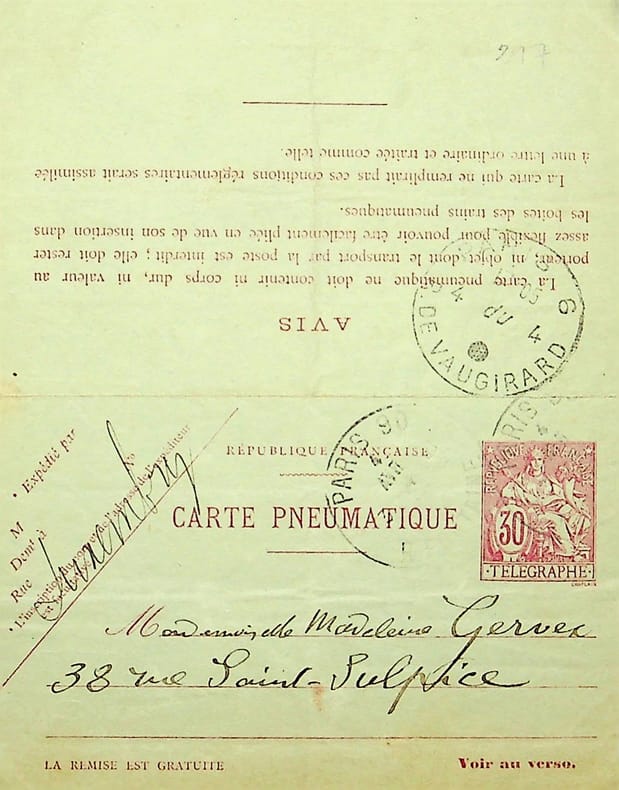 217
AVIS
La carte pneumatique ne doit contenir ni corps dur, ni valeur au
porteur, ni objet dont le transport par la poste est interdit; elle doit rester
assez flexible pour pouvoir être facilement pliée en vue de son insertion dans
les boîtes des trains pneumatiques.
La carte qui ne remplirait pas ces conditions réglementaires serait assimilée
à une lettre ordinaire et traitée comme telle.
DE VAUGIRARD
PARIS
RÉPUBLIQUE FRANÇAISE
CARTE PNEUMATIQUE
REPUBLIQUE FRANÇAISE
30
TELEGRAPHE
CHAPLAIN
Expédié par
M
Demt à
Rue
No
Luxembourg
Mademoiselle Madeleine Gervex
38 rue Saint-Sulpice
LA REMISE EST GRATUITE
Voir au verso.